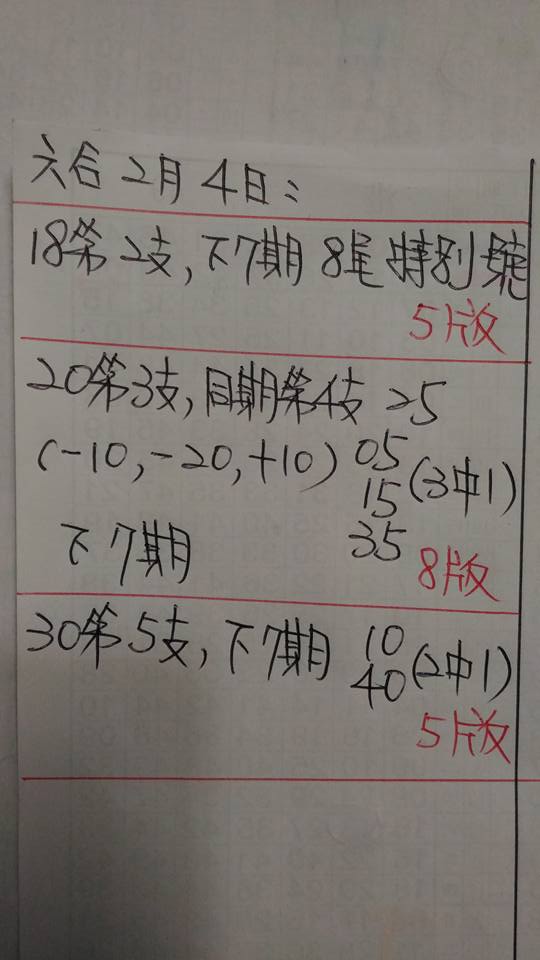 六合2月4日:
18第2支,下7期 8尾特別號
5版
20第3支,同期第4支 25
(-10,-20,+10) 05
15 (3中1)
下7期 35
8版
30第5支,下7期 10
40 (2中1)
5版